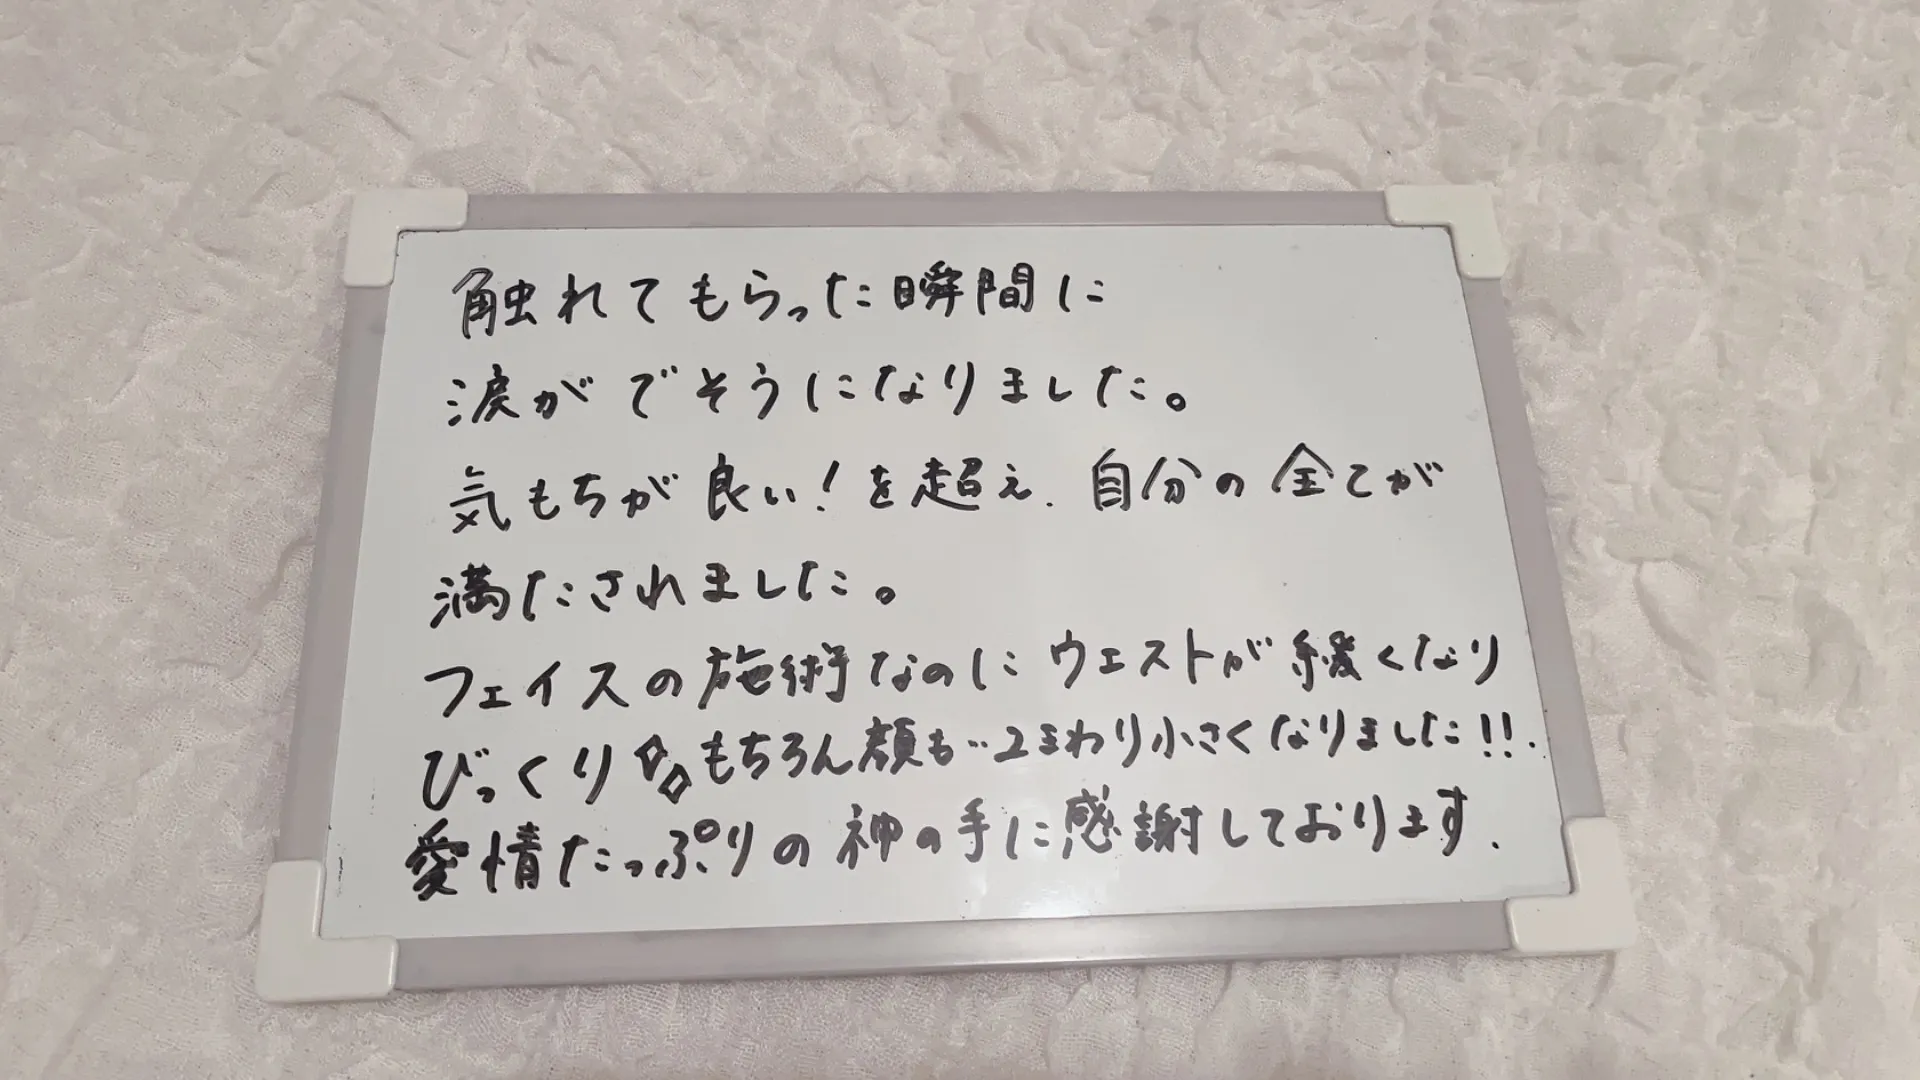 触れてもらった瞬間に
涙がでそうになりました。
気もちが良い!を超え、自分の全てが
満たされました。
フェイスの施術なのにウエストが緩くなり
びっくり✨もちろん顔も‥2まわり小さくなりました!!.
愛情たっぷりの神の手に感謝しております.